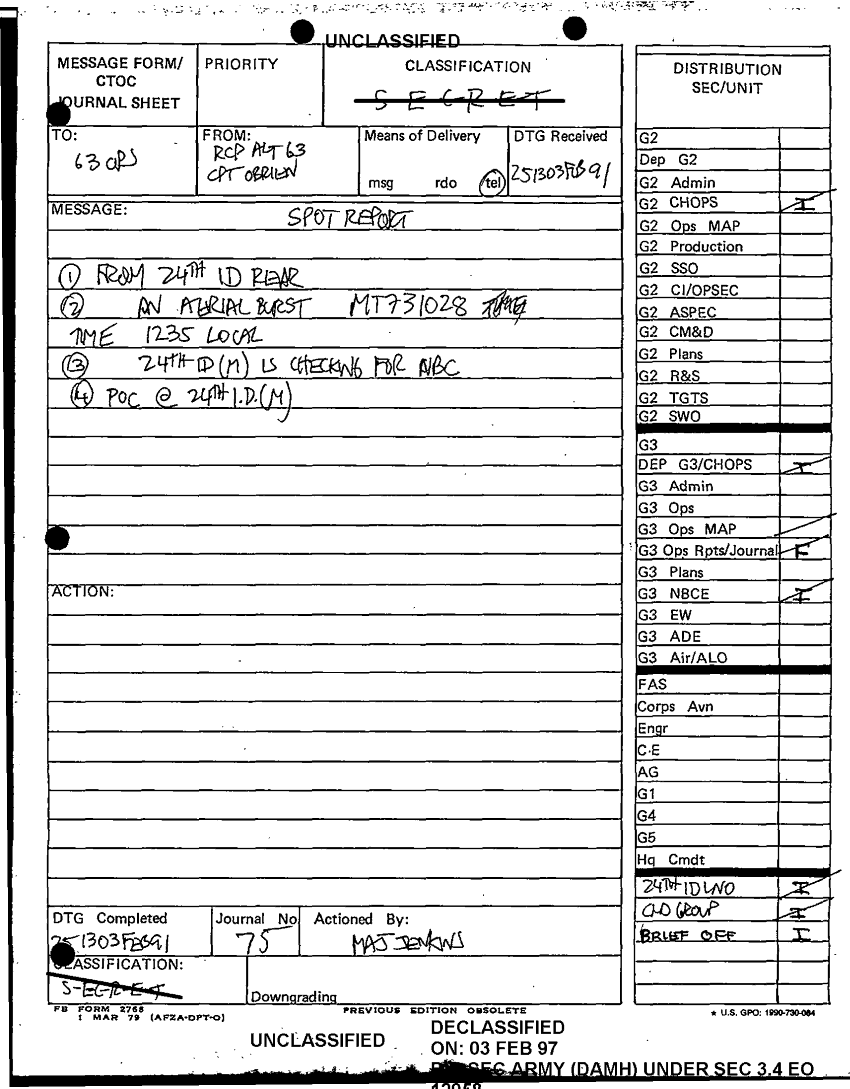 UNCLASSIFIED
MESSAGE FORM/
CTOC
JOURNAL SHEET
PRIORITY
CLASSIFICATION
S-E-C-R-E-T
TO:
63 OPS
FROM:
RCP ALT 63
CPT OBRIEN
Means of Delivery
msg rdo tel
DTG Received
251303FEB91
MESSAGE:
SPOT REPORT
① FROM 24TH ID REAR
② AN AERIAL BURST MT731028
TIME 1235 LOCAL
③ 24TH ID (M) IS CHECKING FOR NBC
④ POC @ 24TH I.D.(M)
ACTION:
DTG Completed
251303FEB91
Journal No
75
Actioned By:
MAJ JENKINS
CLASSIFICATION:
S-E-C-R-E-T
Downgrading
FB FORM 2768
1 MAR 79 (AFZA-DPT-O)
PREVIOUS EDITION OBSOLETE
DISTRIBUTION
SEC/UNIT
G2
Dep G2
G2 Admin
G2 CHOPS I
G2 Ops MAP
G2 Production
G2 SSO
G2 CI/OPSEC
G2 ASPEC
G2 CM&D
G2 Plans
G2 R&S
G2 TGTS
G2 SWO
G3
DEP G3/CHOPS I
G3 Admin
G3 Ops
G3 Ops MAP
G3 Ops Rpts/Journal F
G3 Plans
G3 NBCE I
G3 EW
G3 ADE
G3 Air/ALO
FAS
Corps Avn
Engr
C-E
AG
G1
G4
G5
Hq Cmdt
24TH ID LNO I
CMD GROUP I
BRIEF OFF I
* U.S. GPO: 1990-730-084
UNCLASSIFIED
DECLASSIFIED
ON: 03 FEB 97
SEC ARMY (DAMH) UNDER SEC 3.4 EO
12958